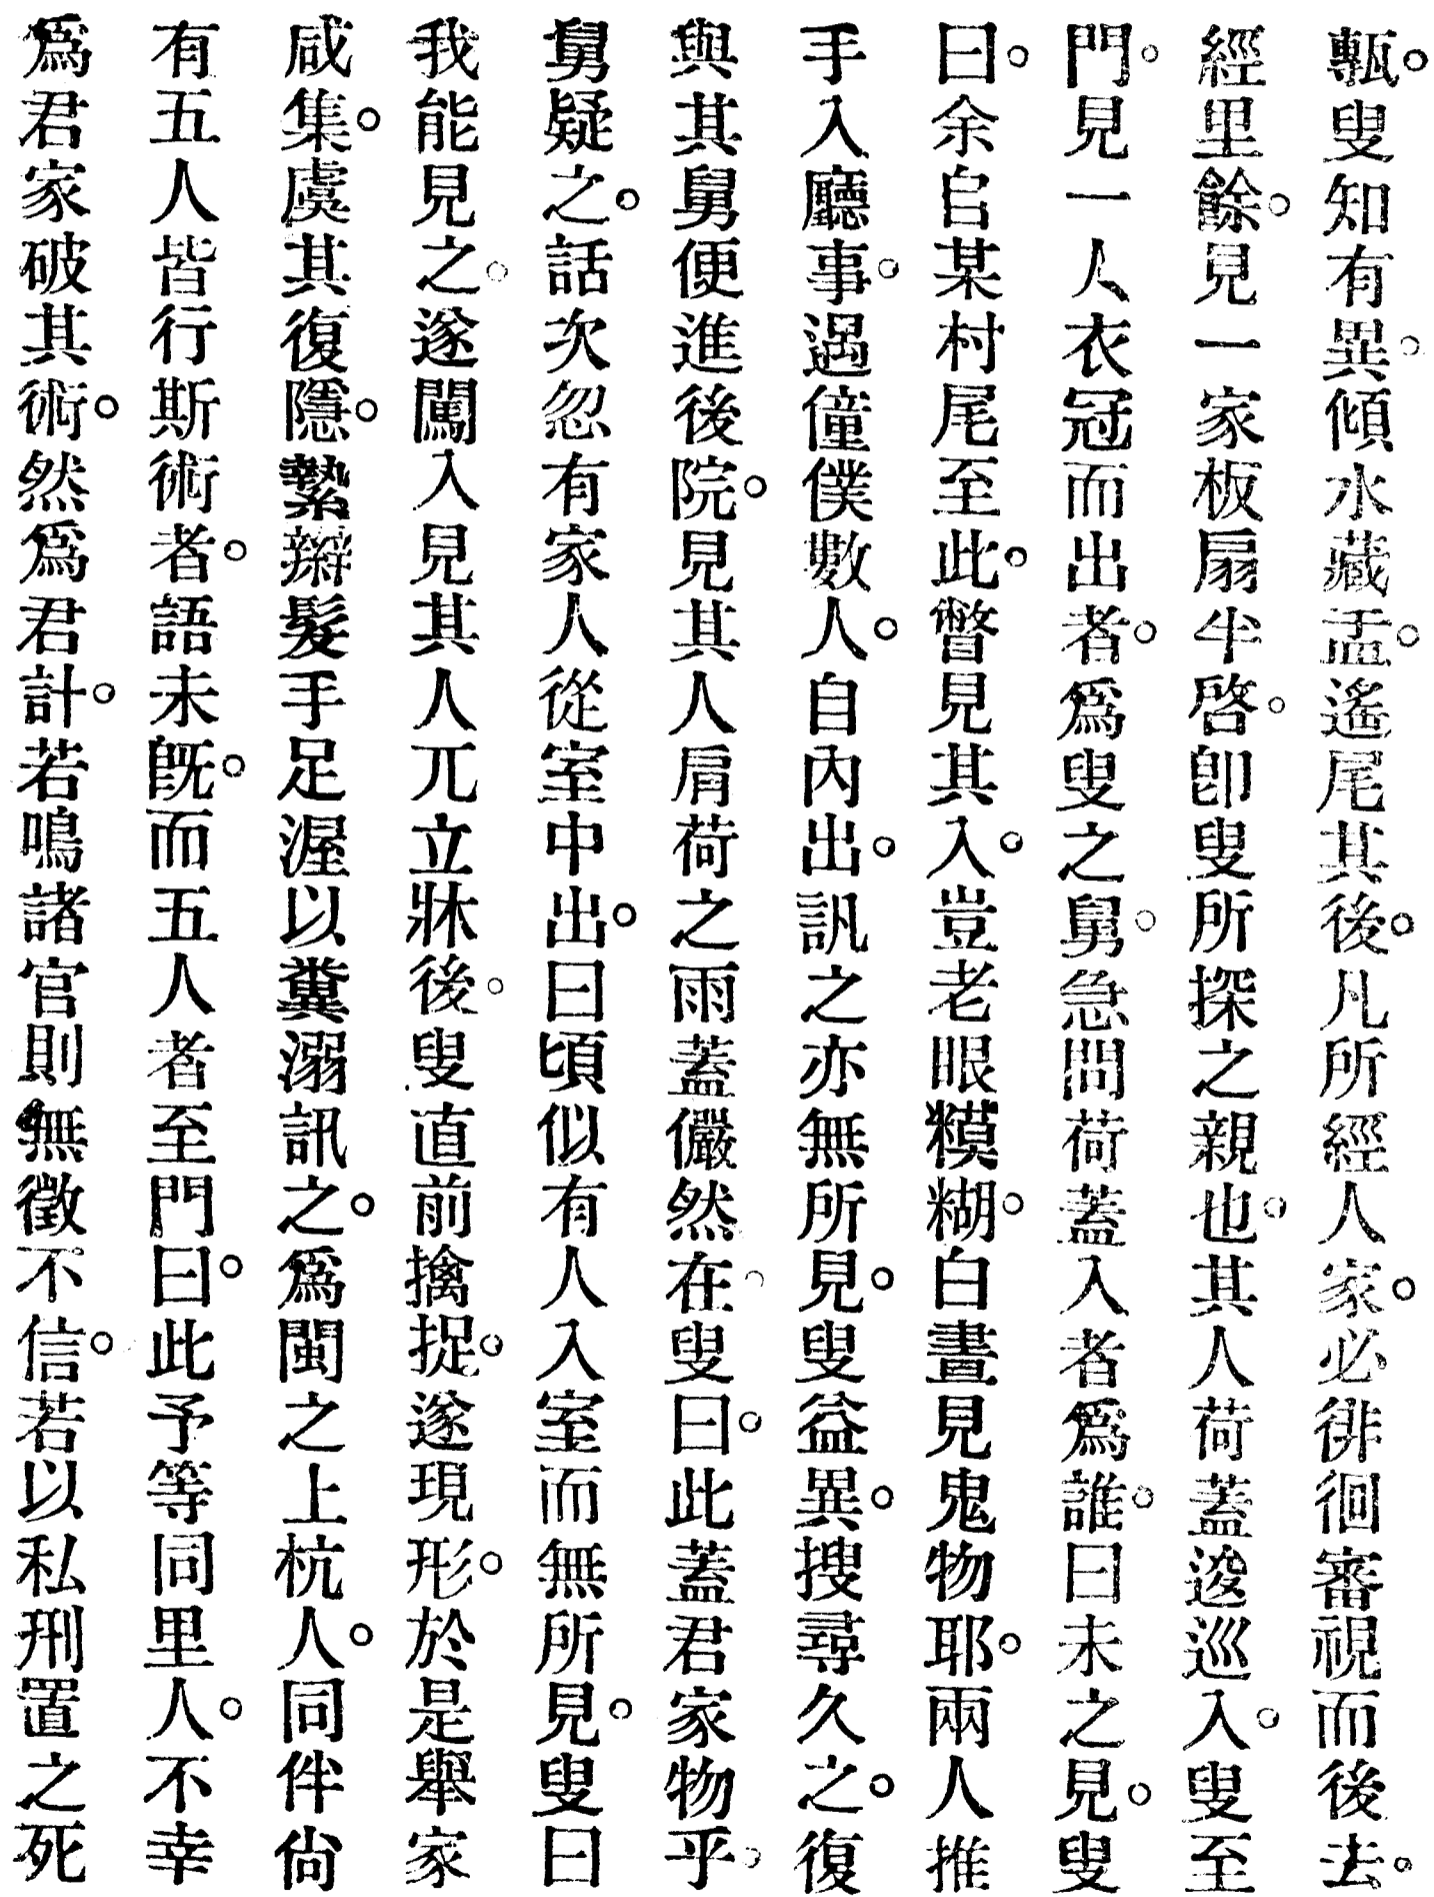 甎。叟知有異。傾水藏盂。遙尾其後。凡所經人家。必徘徊審視而後去。
經里餘。見一家板扇半啓。卽叟所探之親也。其人荷蓋逡巡入。叟至
門。見一人衣冠而出者。爲叟之舅。急問荷蓋入者爲誰。曰未之見。叟
曰。余自某村尾至此。瞥見其入。豈老眼糢糊。白晝見鬼物耶。兩人推
手入廳事。遇僮僕數人。自內出。訊之亦無所見。叟益異。搜尋久之。復
與其舅便進後院。見其人肩荷之雨蓋儼然在。叟曰。此蓋君家物乎。
舅疑之。話次忽有家人從室中出。曰頃似有人入室而無所見。叟曰
我能見之。遂闖入見其人兀立牀後。叟直前擒捉。遂現形。於是舉家
咸集。虞其復隱。縶辮髮手足渥以糞溺訊之。爲閩之上杭人。同伴尙
有五人皆行斯術者。語未旣。而五人者至門曰。此予等同里人。不幸
爲君家破其術。然爲君計。若鳴諸官則無徵不信。若以私刑置之死